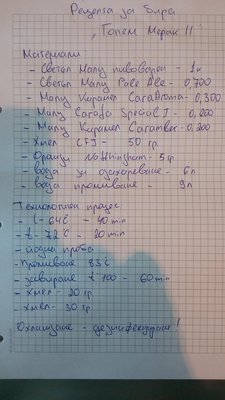 Рецепта за бира
"Голем Мерак II"
Материали
- Светъл Малц пивоварен - 1к
- Светъл Малц Pale Ale - 0,700
- Малц Карамел CaraAroma - 0,300
- Малц Carafa Special I - 0,200
- Малц Карамел Caramber - 0,200
- Хмел - 50 гр
- Nottingham - 5 гр
- вода за озахаряване - 6л
- вода промиване - 9л
Технологичен процес
- t - 64°C - 40 min
- t - 72°C - 20 min
- йодна проба
- Промиване 83°C
- заВиране t 100 - 60 min
- хмел - 20 гр
- хмел - 30 гр.
Охлащане - дезинфекциране!